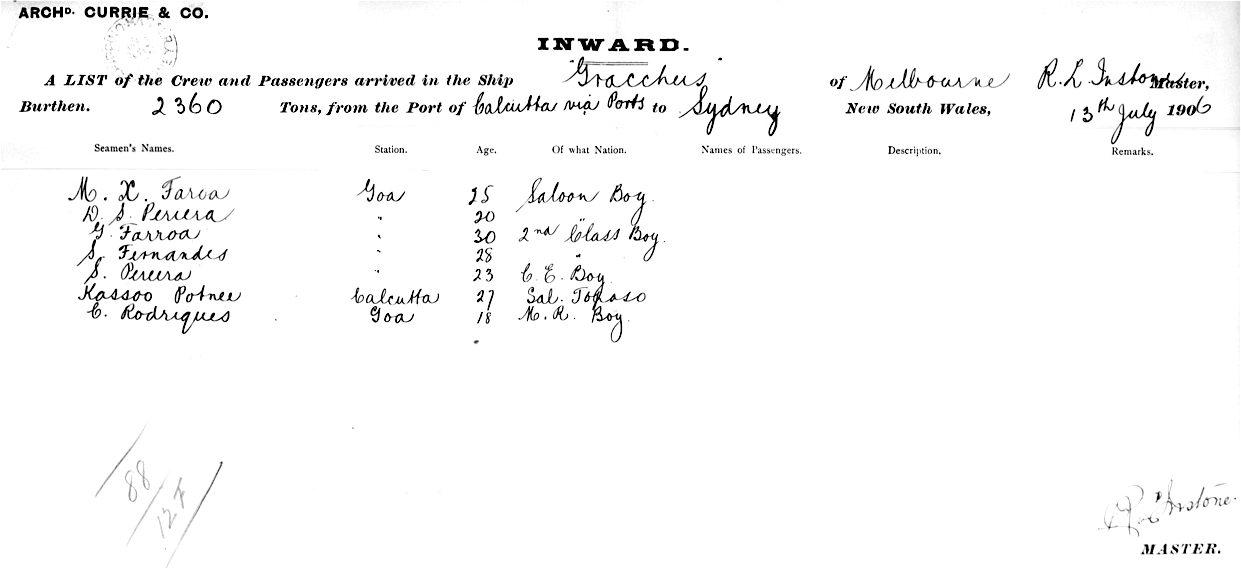 ARCHD. CURRIE & CO.
INWARD.
A LIST of the Crew and Passengers arrived in the Ship "Gracchus" of Melbourne R. L Instone Master,
Burthen. 2360 Tons, from the Port of Calcutta via Ports to Sydney New South Wales, 13th July 1906
Seamen's Names. Station. Age. Of what Nation. Names of Passengers. Description. Remarks.
M. X. Faroa Goa 25 Saloon Boy.
D. S. Periera " 20 "
G. Farroa " 30 2nd Class Boy.
S. Fernandes " 28 "
S. Pereira " 23 C. E. Boy
Kassoo Potnee Calcutta 27 Sal. Topaso
C. Rodriques Goa 18 M. R. Boy.
88
127
R L Instone.
MASTER.